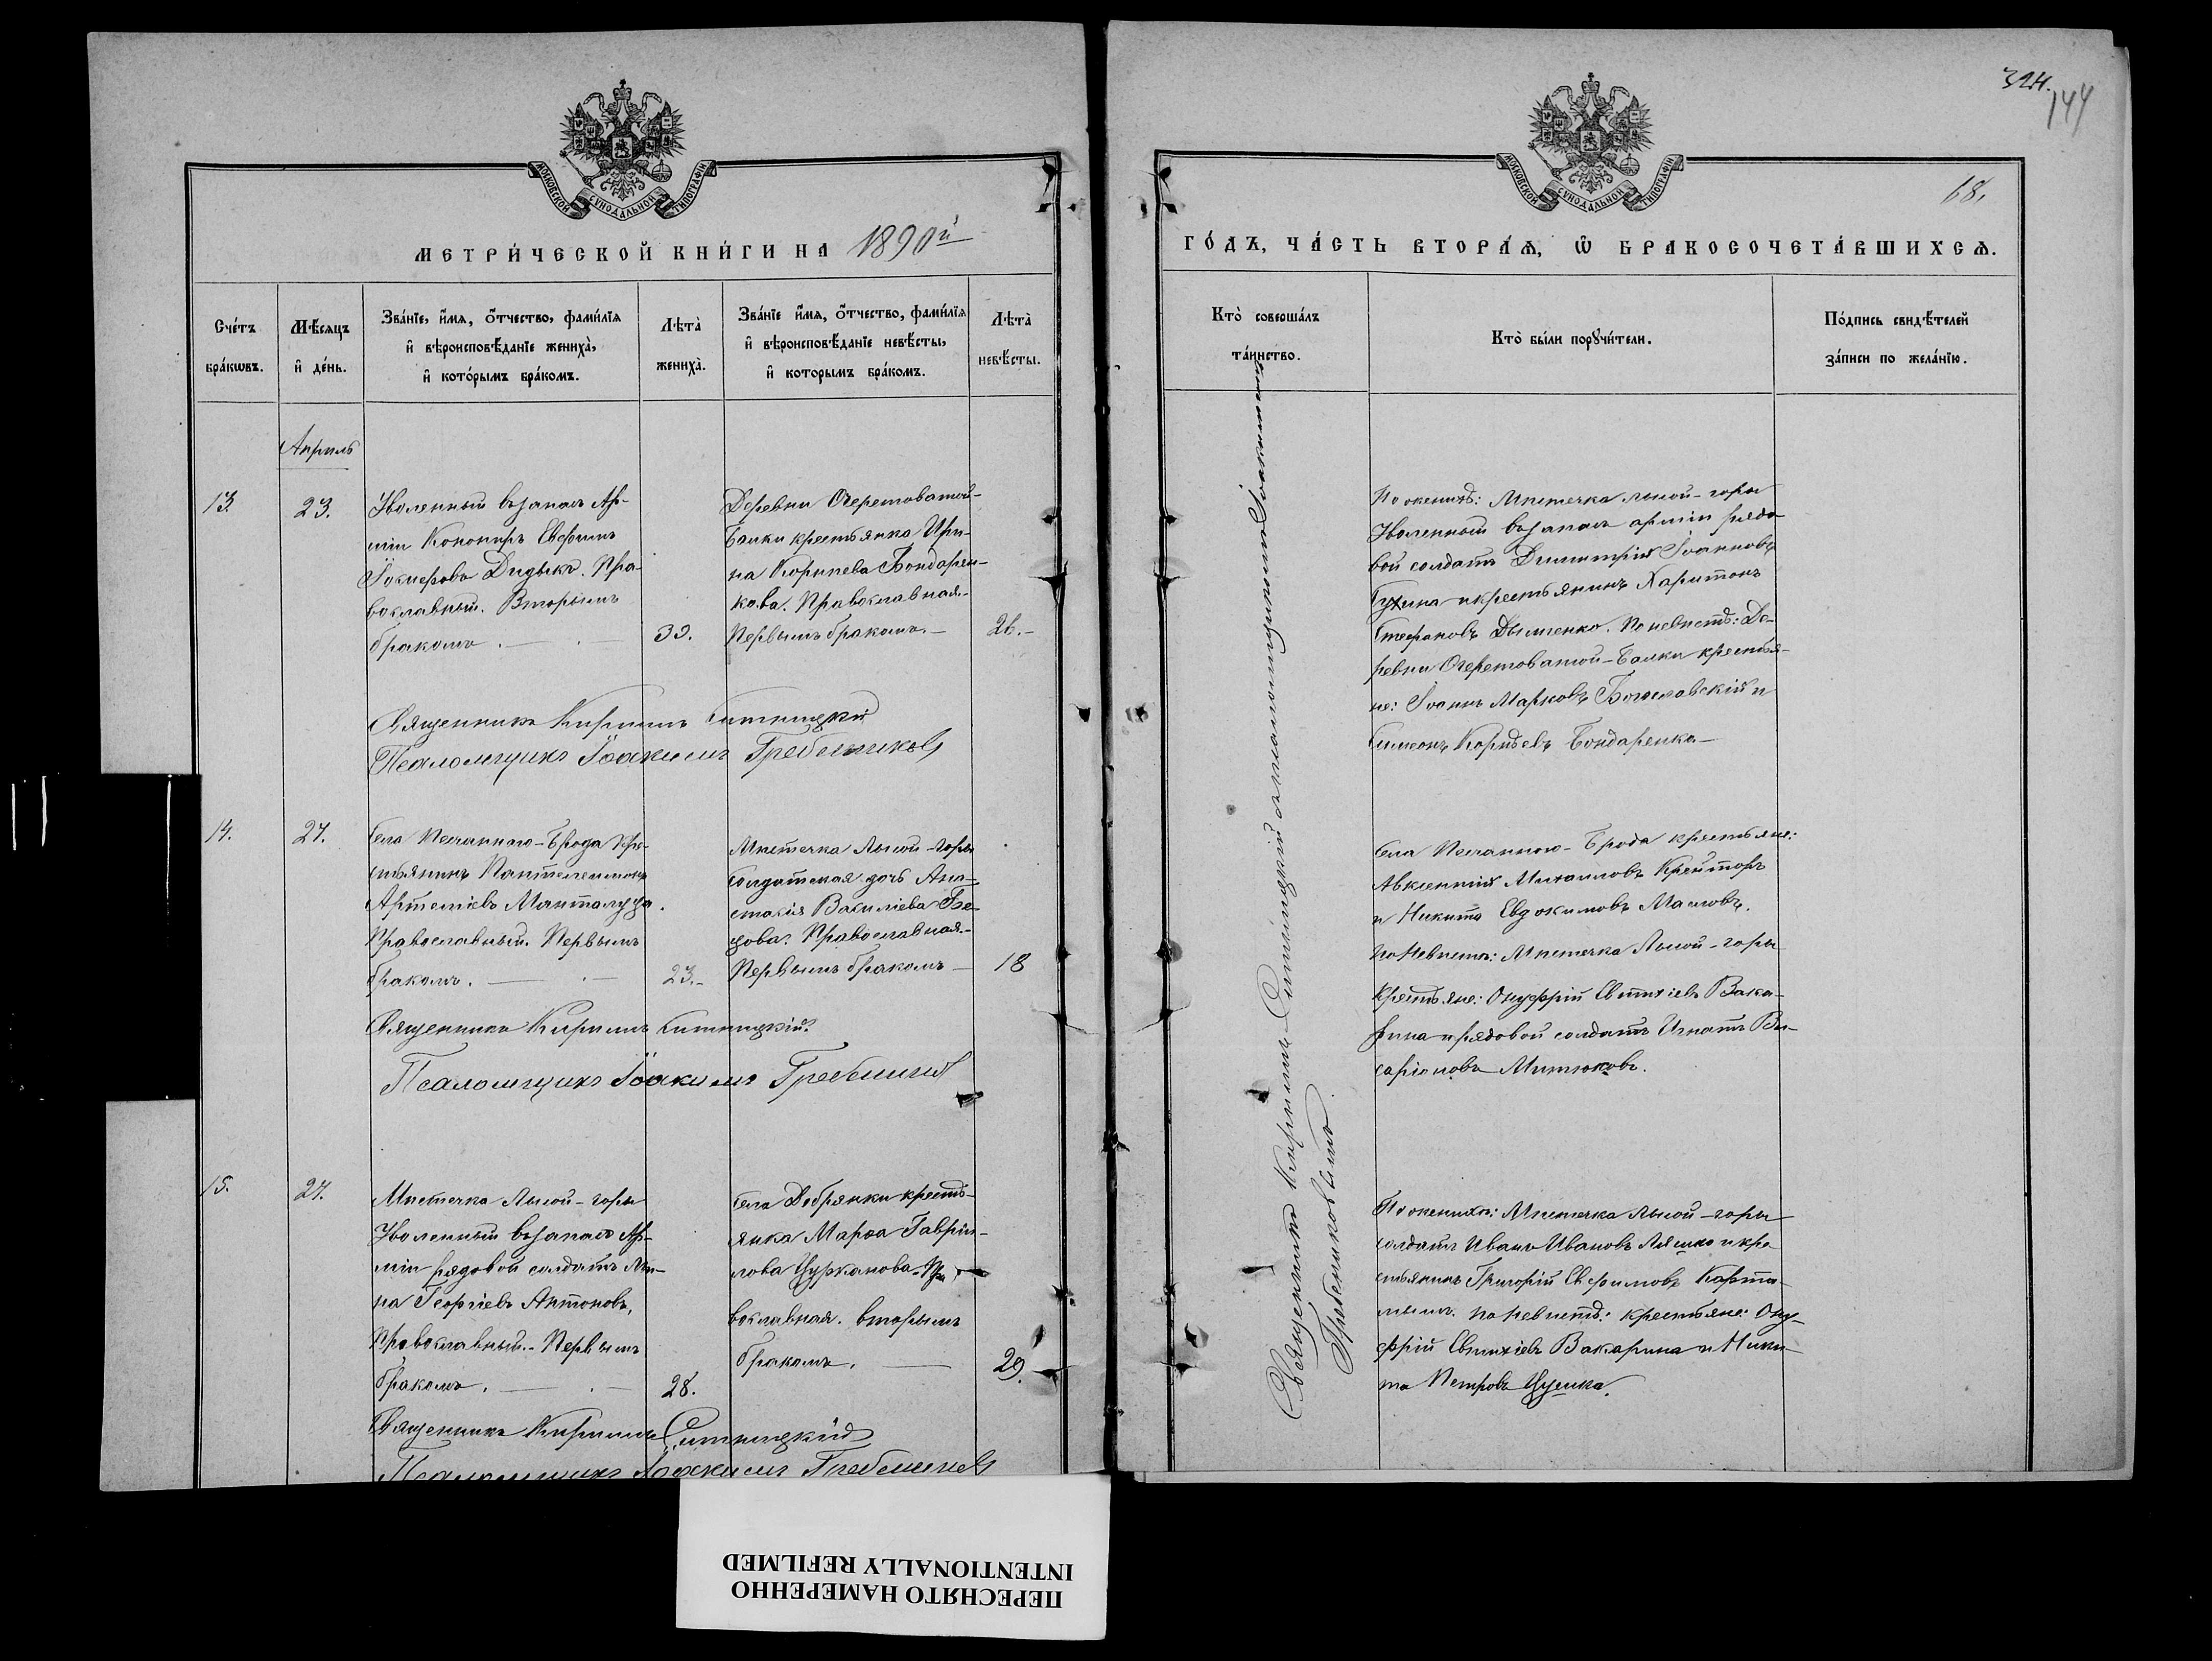 МОСКОВСКОЙ СУНОДАЛЬНОЙ ТИПОГРАФІИ
МЕТРИ́ЧЕСКОЙ КНИ́ГИ НА 1890й
Сче́тъ бра́кѡвъ.
Мѣ́сяцъ и҆ де́нь.
Зва́нїе, и҆́мя, ѻ҆́тчество, фами́лїя
и҆ вѣроисповѣ́данїе женихà,
и҆ кото́рымъ бра́комъ.
Лѣтà
женихà.
Зва́нїе и҆́мя, ѻ҆́тчество, фами́лїя
и҆ вѣроисповѣ́данїе невѣ́сты,
и҆ которымъ бра́комъ.
Лѣтà
невѣ́сты.
Апрѣль
13.
23.
Уволенный въ запасъ Ар-
міи Канониръ Евфимъ
Іосифовъ Дидыкъ. Пра-
вославный. Вторымъ
бракомъ.
33.
Деревни Очеретоватой-
Балки крестьянка Ири-
на Корнѣева Бондарен-
кова. Православная.
Первымъ бракомъ.
26.
Священникъ Кириллъ Ситницкій
Псаломщикъ Іоакимъ Гребенниковъ
14.
27.
Села Песчаннаго-Брода кре-
стьянинъ Пантелеимонъ
Артеміевъ Манталуца.
Православный. Первымъ
бракомъ.
23.
Мѣстечка Лысой-горы
солдатская дочь Ана-
стасія Василіева
Православная.
Первымъ бракомъ
18
Священникъ Кириллъ Ситницкій.
Псаломщикъ Іоакимъ Гребенниковъ
15.
27.
Мѣстечка Лысой-горы
Уволенный въ запасъ Ар-
міи рядовой солдатъ
Георгіевъ Антоновъ,
Православный. Первымъ
бракомъ.
28.
Села Добрянки кресть-
янка Марѳа Гаврии-
лова Цурканова. Пра-
вославная. вторымъ
бракомъ.
29.
Священникъ Кириллъ Ситницкій
Псаломщикъ Іоакимъ Гребенниковъ
324.
144
68.
МОСКОВСКОЙ СУНОДАЛЬНОЙ ТИПОГРАФІИ
ГО́ДЪ, ЧА́СТЬ ВТОРА́Я, Ѡ҆ БРАКОСОЧЕТА́ВШИХСЯ.
Кто̀ соверша́лъ
та́инство.
Кто̀ бы́ли порꙋчи́тели.
По́дпись свидѣ́телей
за́писи по жела́нїю.
Священникъ Кириллъ Ситницкій съ псаломщикомъ Іоакимомъ
Гребенниковымъ.
По женихѣ: Мѣстечка Лысой-горы
Уволенный въ запасъ арміи рядо-
вой солдатъ Димитрій Іоанновъ
и крестьянинъ Харитонъ
Стефановъ Дымченко. По невѣстѣ: Де-
ревни Очеретоватой-Балки крестья-
не: Іоаннъ Марковъ Богославскій и
Симеонъ Корнѣевъ Бондаренко
Села Песчаннаго-Брода крестьяне:
Авксентій Михаиловъ Крейторъ
и Никита Евдокимовъ Масловъ.
По невѣстѣ: Мѣстечка Лысой-горы
крестьяне: Онуфрій Евтихіевъ Вака-
рина и рядовой солдатъ Игнатъ Ви-
саріоновъ Митюковъ.
По женихѣ: Мѣстечка Лысой-горы
солдатъ Иванъ Ивановъ Ляшко и кре-
стьянинъ Григорій Евфимовъ Карта-
мышъ. по невѣстѣ: крестьяне: Ону-
фрій Евтихіевъ Вакарина и Ники-
та Петровъ
ПЕРЕСНЯТО НАМЕРЕННО
INTENTIONALLY REFILMED